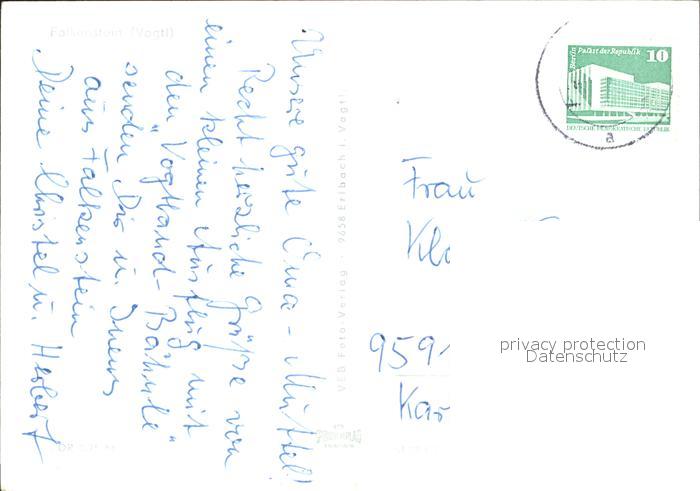 Falkenstein (Vogtl)
Unsere gute Oma - Muttel!
Recht herzliche Grüße von
einen kleinen Ausflug mit
den "Vogtland-Bähnle"
senden Dir u. Ihnen
aus Falkenstein
Deine Christel u. Herbert
VEB Foto-Verlag · 9658 Erlbach i. Vogtl.
Berlin Palast der Republik 10
DEUTSCHE DEMOKRATISCHE REPUBLIK
a
Frau
959
privacy protection
Datenschutz